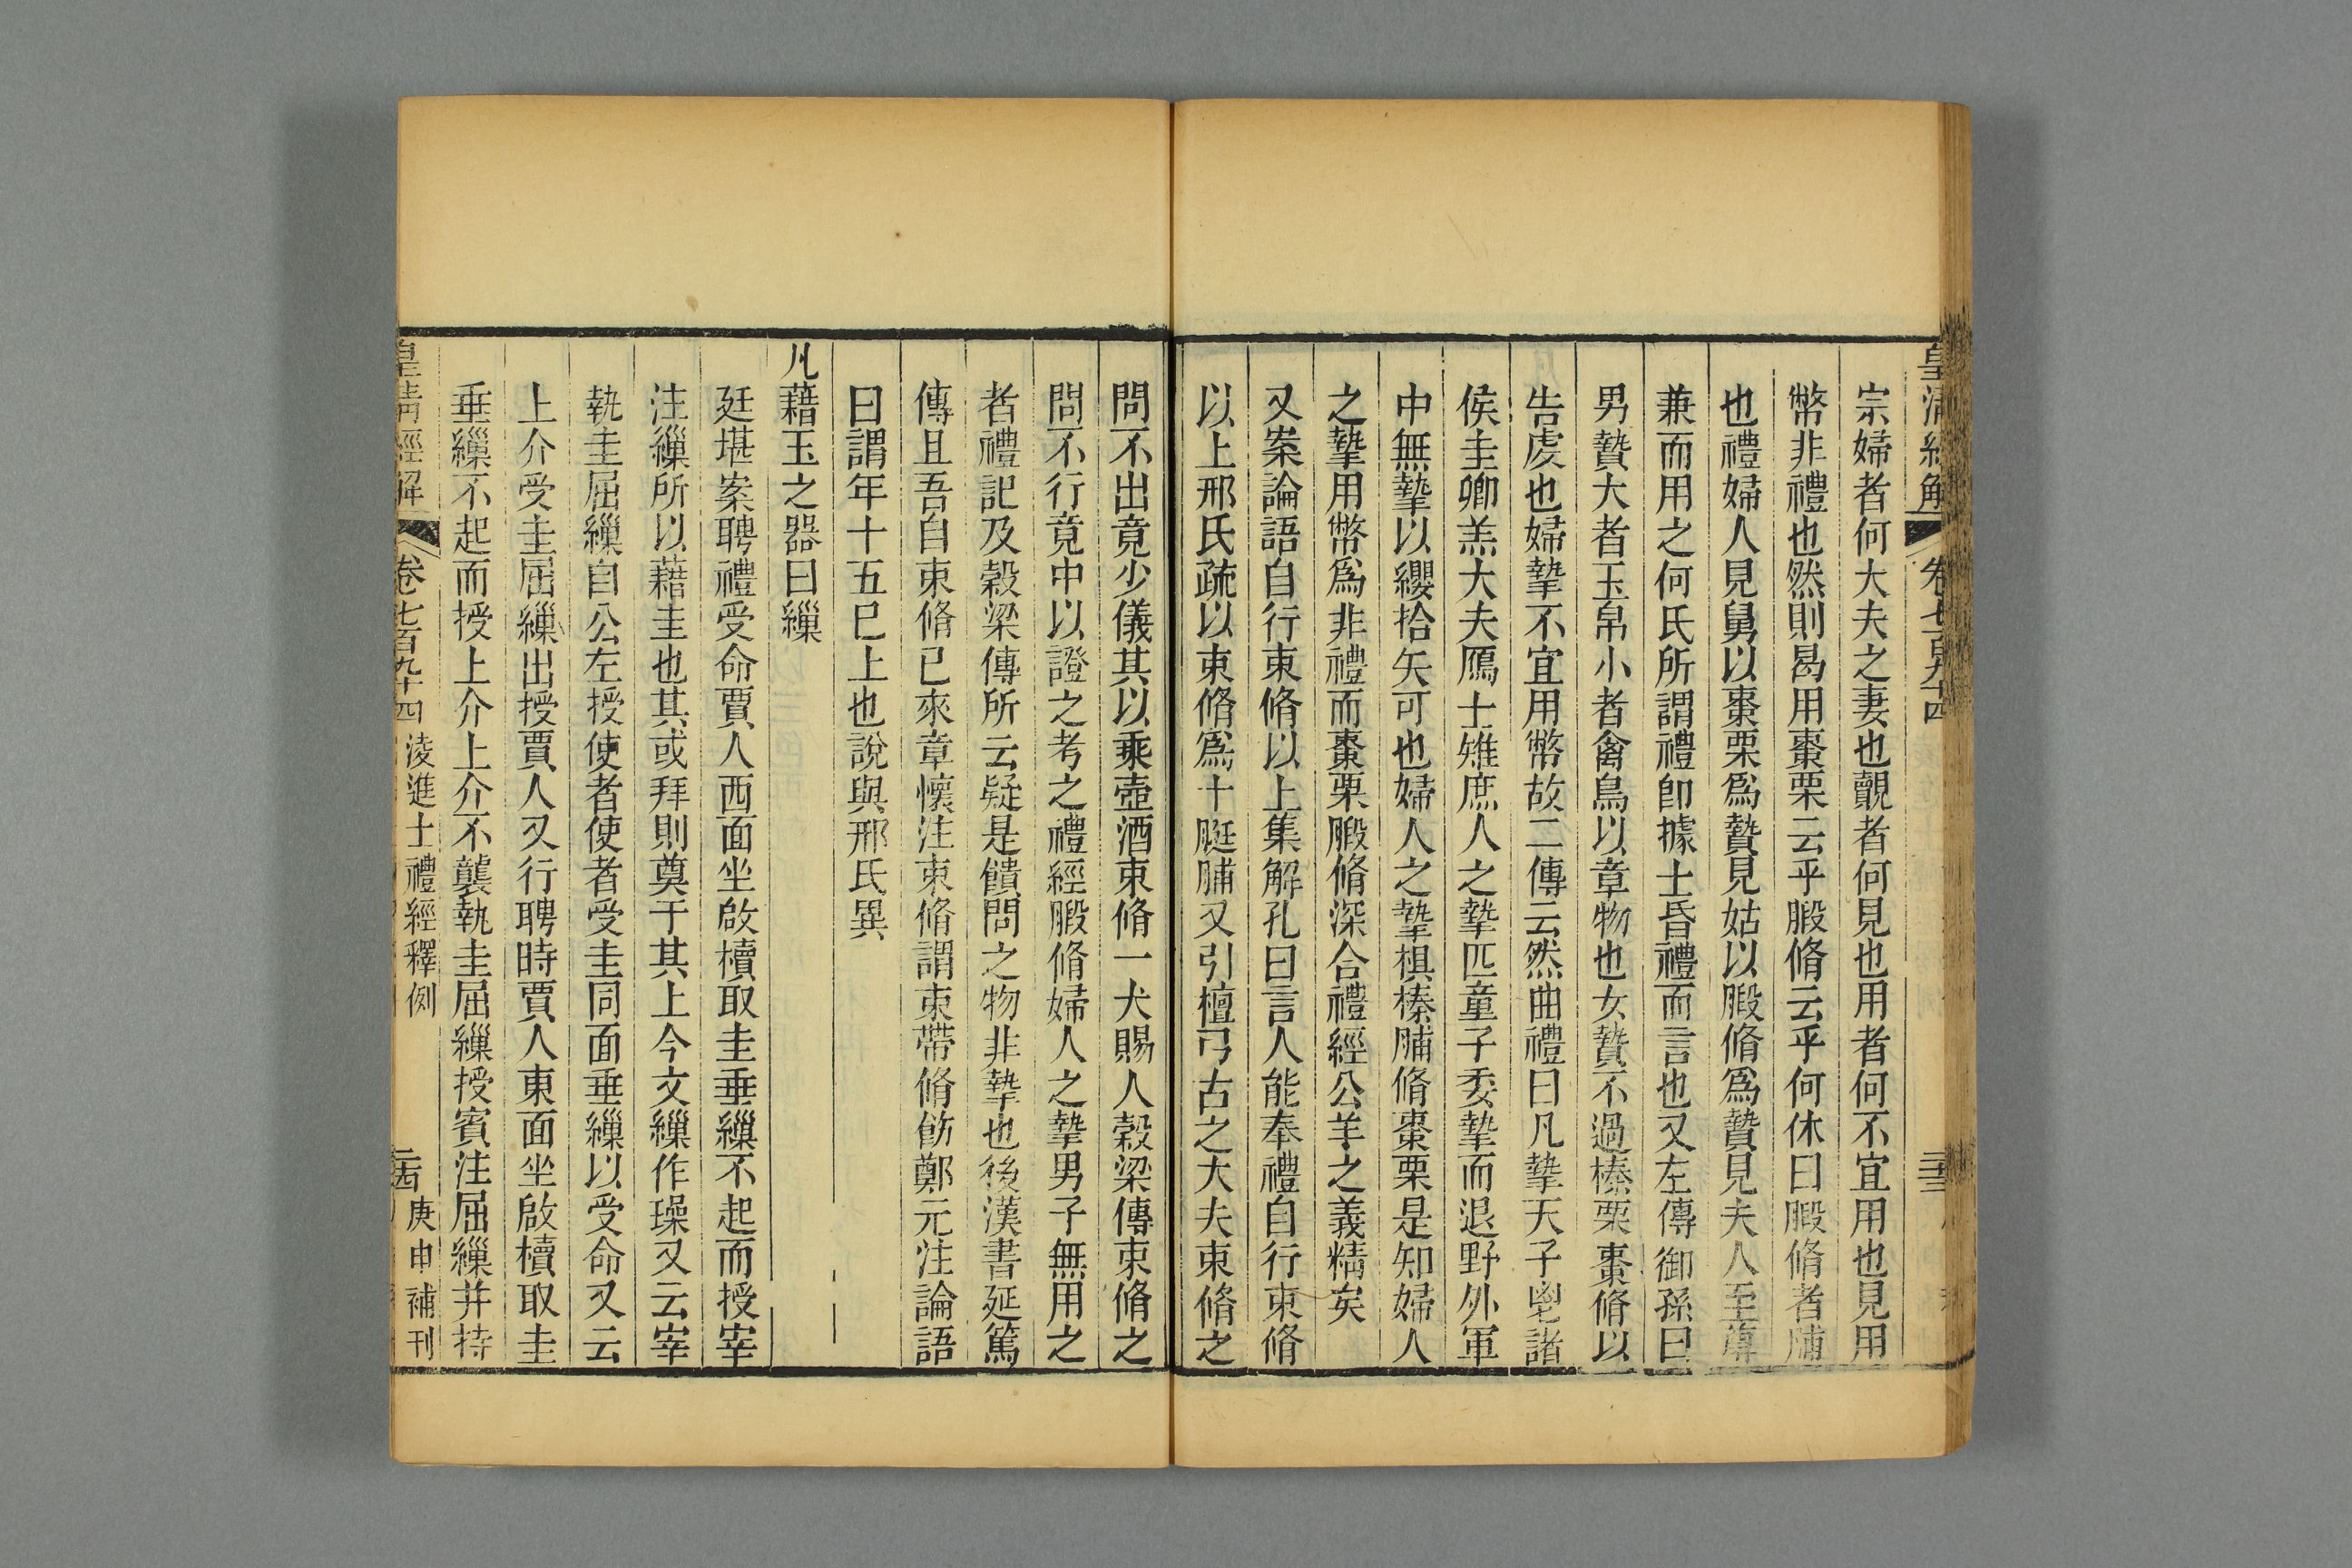 皇清經解
卷七百九十四
宗婦者何大夫之妻也覿者何見也用者何不宜用也見用
幣非禮也然則曷用棗栗云乎腶脩云乎何休曰腶脩者脯
也禮婦人見舅以棗栗爲贄見姑以腶脩爲贄見夫人至尊
兼而用之何氏所謂禮卽據士昏禮而言也又左傳御孫曰
男贄大者玉帛小者禽鳥以章物也女贄不過榛栗棗脩以
告虔也婦摯不宜用幣故二傳云然曲禮曰凡摯天子鬯諸
侯圭卿羔大夫鴈士雉庶人之摯匹童子委摯而退野外軍
中無摯以纓拾矢可也婦人之摯椇榛脯脩棗栗是知婦人
之摯用幣爲非禮而棗栗腶脩深合禮經公羊之義精矣
又案論語自行束脩以上集解孔曰言人能奉禮自行束脩
以上邢氏疏以束脩爲十脡脯又引檀弓古之大夫束脩之
問不出竟少儀其以乘壺酒束脩一犬賜人穀梁傳束脩之
問不行竟中以證之考之禮經腶脩婦人之摯男子無用之
者禮記及穀梁傳所云疑是饋問之物非摯也後漢書延篤
傳且吾自束脩已來章懷注束脩謂束帶脩飭鄭元注論語
曰謂年十五已上也說與邢氏異
凡藉玉之器曰繅
廷堪案聘禮受命賈人西面坐啟櫝取圭垂繅不起而授宰
注繅所以藉圭也其或拜則奠于其上今文繅作璪又云宰
執圭屈繅自公左授使者使者受圭同面垂繅以受命又云
上介受圭屈繅出授賈人又行聘時賈人東面坐啟櫝取圭
垂繅不起而授上介上介不襲執圭屈繅授賓注屈繅并持
皇清經解
卷七百九十四
淩進士禮經釋例
庚申補刊